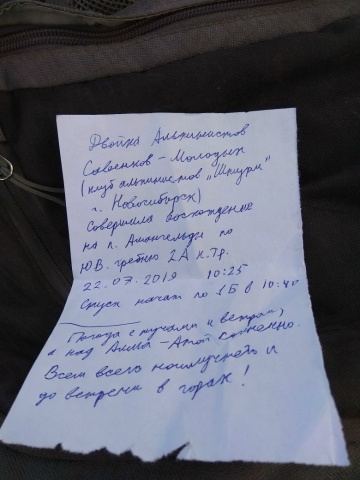 Двойка Альпинистов
Савенков - Молодых
(клуб альпинистов "Штурм"
г. Новосибирск)
Совершила восхождение
на п. Амангельды по
ЮВ. гребню 2А к.тр.
22.07.2019 10:25
Спуск начат по 1Б в 10:40
Погода с тучами и ветром,
а над Алма-Атой
Всем всего наилучшего и
до встречи в горах!